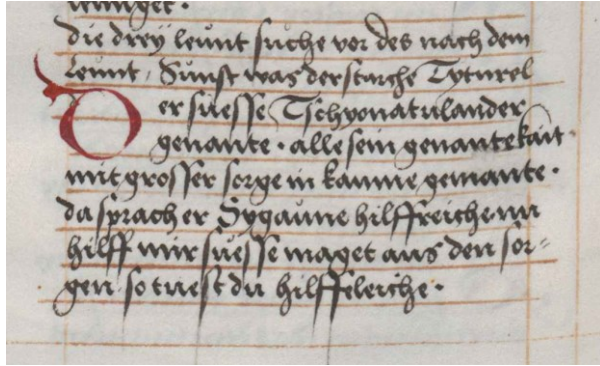 die drey leünt süche vor des nach dem
leünt, Sunst was der starche Tyturel
Der süesse Tschyonatulander
genante · alle sein genantekait
mit grosser sorge in kaume gemante ·
da sprach er Sygaune hilffreiche nu
hilff mir süesse maget aus den sor-
gen so tuest du hilffeleiche ·